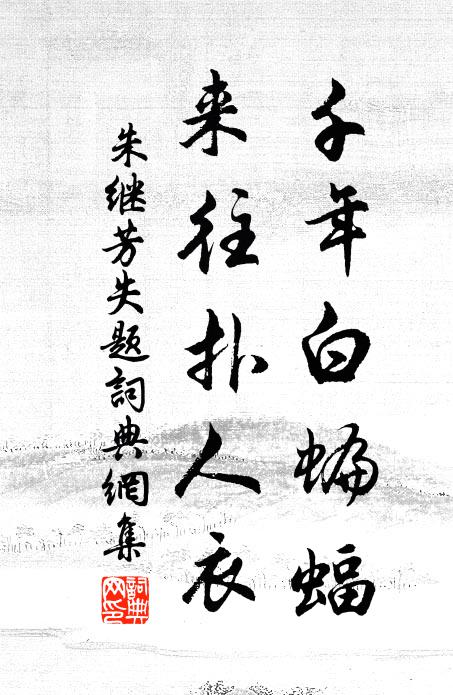 千年白蝙蝠
来往扑人衣
朱继芳失题詞典網集
詞典网印